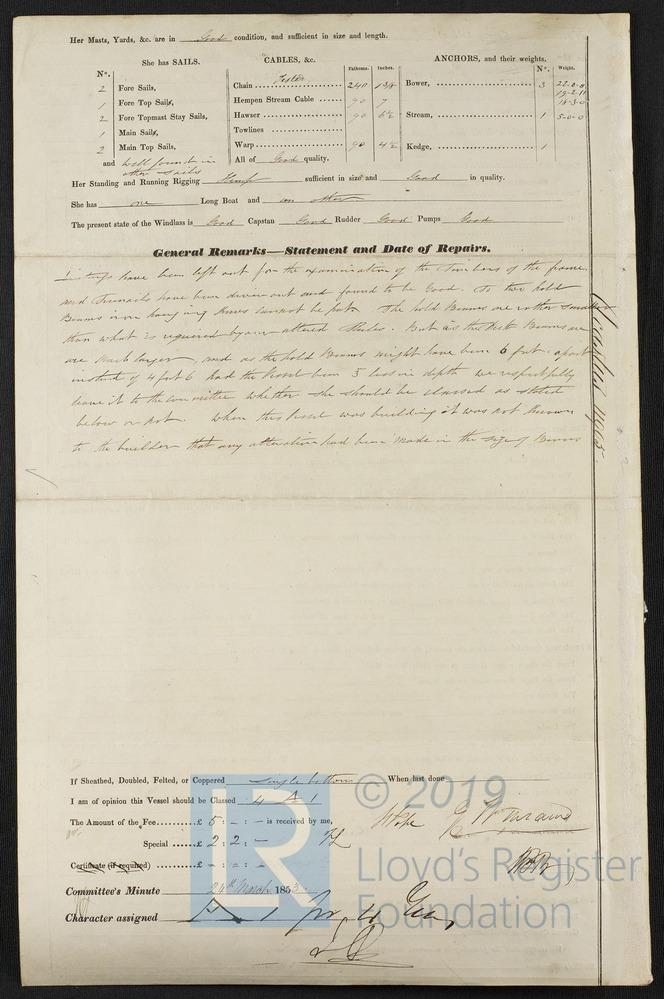 Her Masts, Yards, &c. are in Good condition, and sufficient in size and length.
She has SAILS.
CABLES, &c.
ANCHORS, and their weights.
N°.
Fathoms. Inches.
N°. Weight.
2 Fore Sails,
1 Fore Top Sails,
2 Fore Topmast Stay Sails,
1 Main Sails,
2 Main Top Sails,
and well found in
other sails
Tested
Chain 240
Hempen Stream Cable 90 7
Hawser 90 6½
Towlines
Warp 90 4½
All of Good quality.
Bower, 3
Stream, 1 5-0-0
Kedge, 1
Her Standing and Running Rigging Hemp sufficient in size and Good in quality.
She has one Long Boat and an other
The present state of the Windlass is Good Capstan Good Rudder Good Pumps Good
General Remarks—Statement and Date of Repairs.
have been left out for the examination of the Timbers of the frame
and Treenails have been driven out and found to be Good. To the hold
Beams iron hanging knees cannot be put. The hold Beams are rather smaller
than what is required by our altered Rules. But as the Deck Beams are
are Much larger, and as the hold Beams might have been 6 feet apart
instead of 4 feet 6 had the Vessel been 3 less in depth we respectfully
leave it to the committee whether she should be classed as stated
below or not. When this Vessel was building it was not known
to the builder that any alteration had been made in the size of Beams
If Sheathed, Doubled, Felted, or Coppered single bottom When last done
I am of opinion this Vessel should be Classed 4 A 1
The Amount of the Fee £ 5 : - : - is received by me,
Special £ 2 : 2 : -
Certificate (if required) £ - : - : -
Committee's Minute 24th March 1853
Character assigned A 1 for 4
© 2019
LR
Lloyd's Register
Foundation